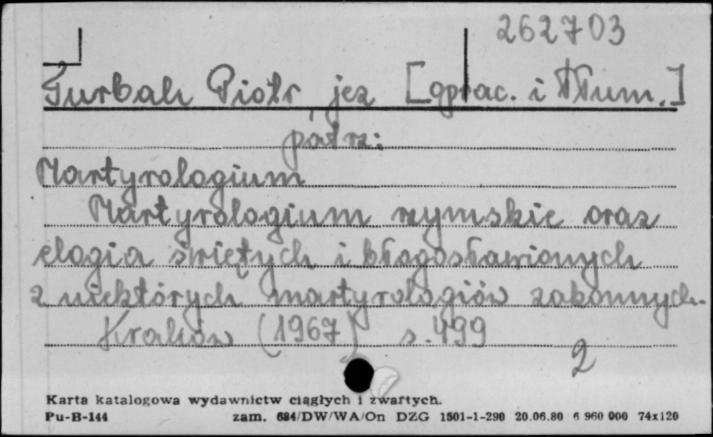 262703
Turbak Piotr jez [oprac. i tłum.]
patrz:
Martyrologium
Martyrologium rzymskie oraz
elogia świętych i błogosławionych
z niektórych martyrologiów zakonnych.
Kraków (1967) s. 499
2
Karta katalogowa wydawnictw ciągłych i zwartych.
Pu-B-144 zam. 684/DW/WA/On DZG 1501-1-290 20.06.80 6 960 000 74x120